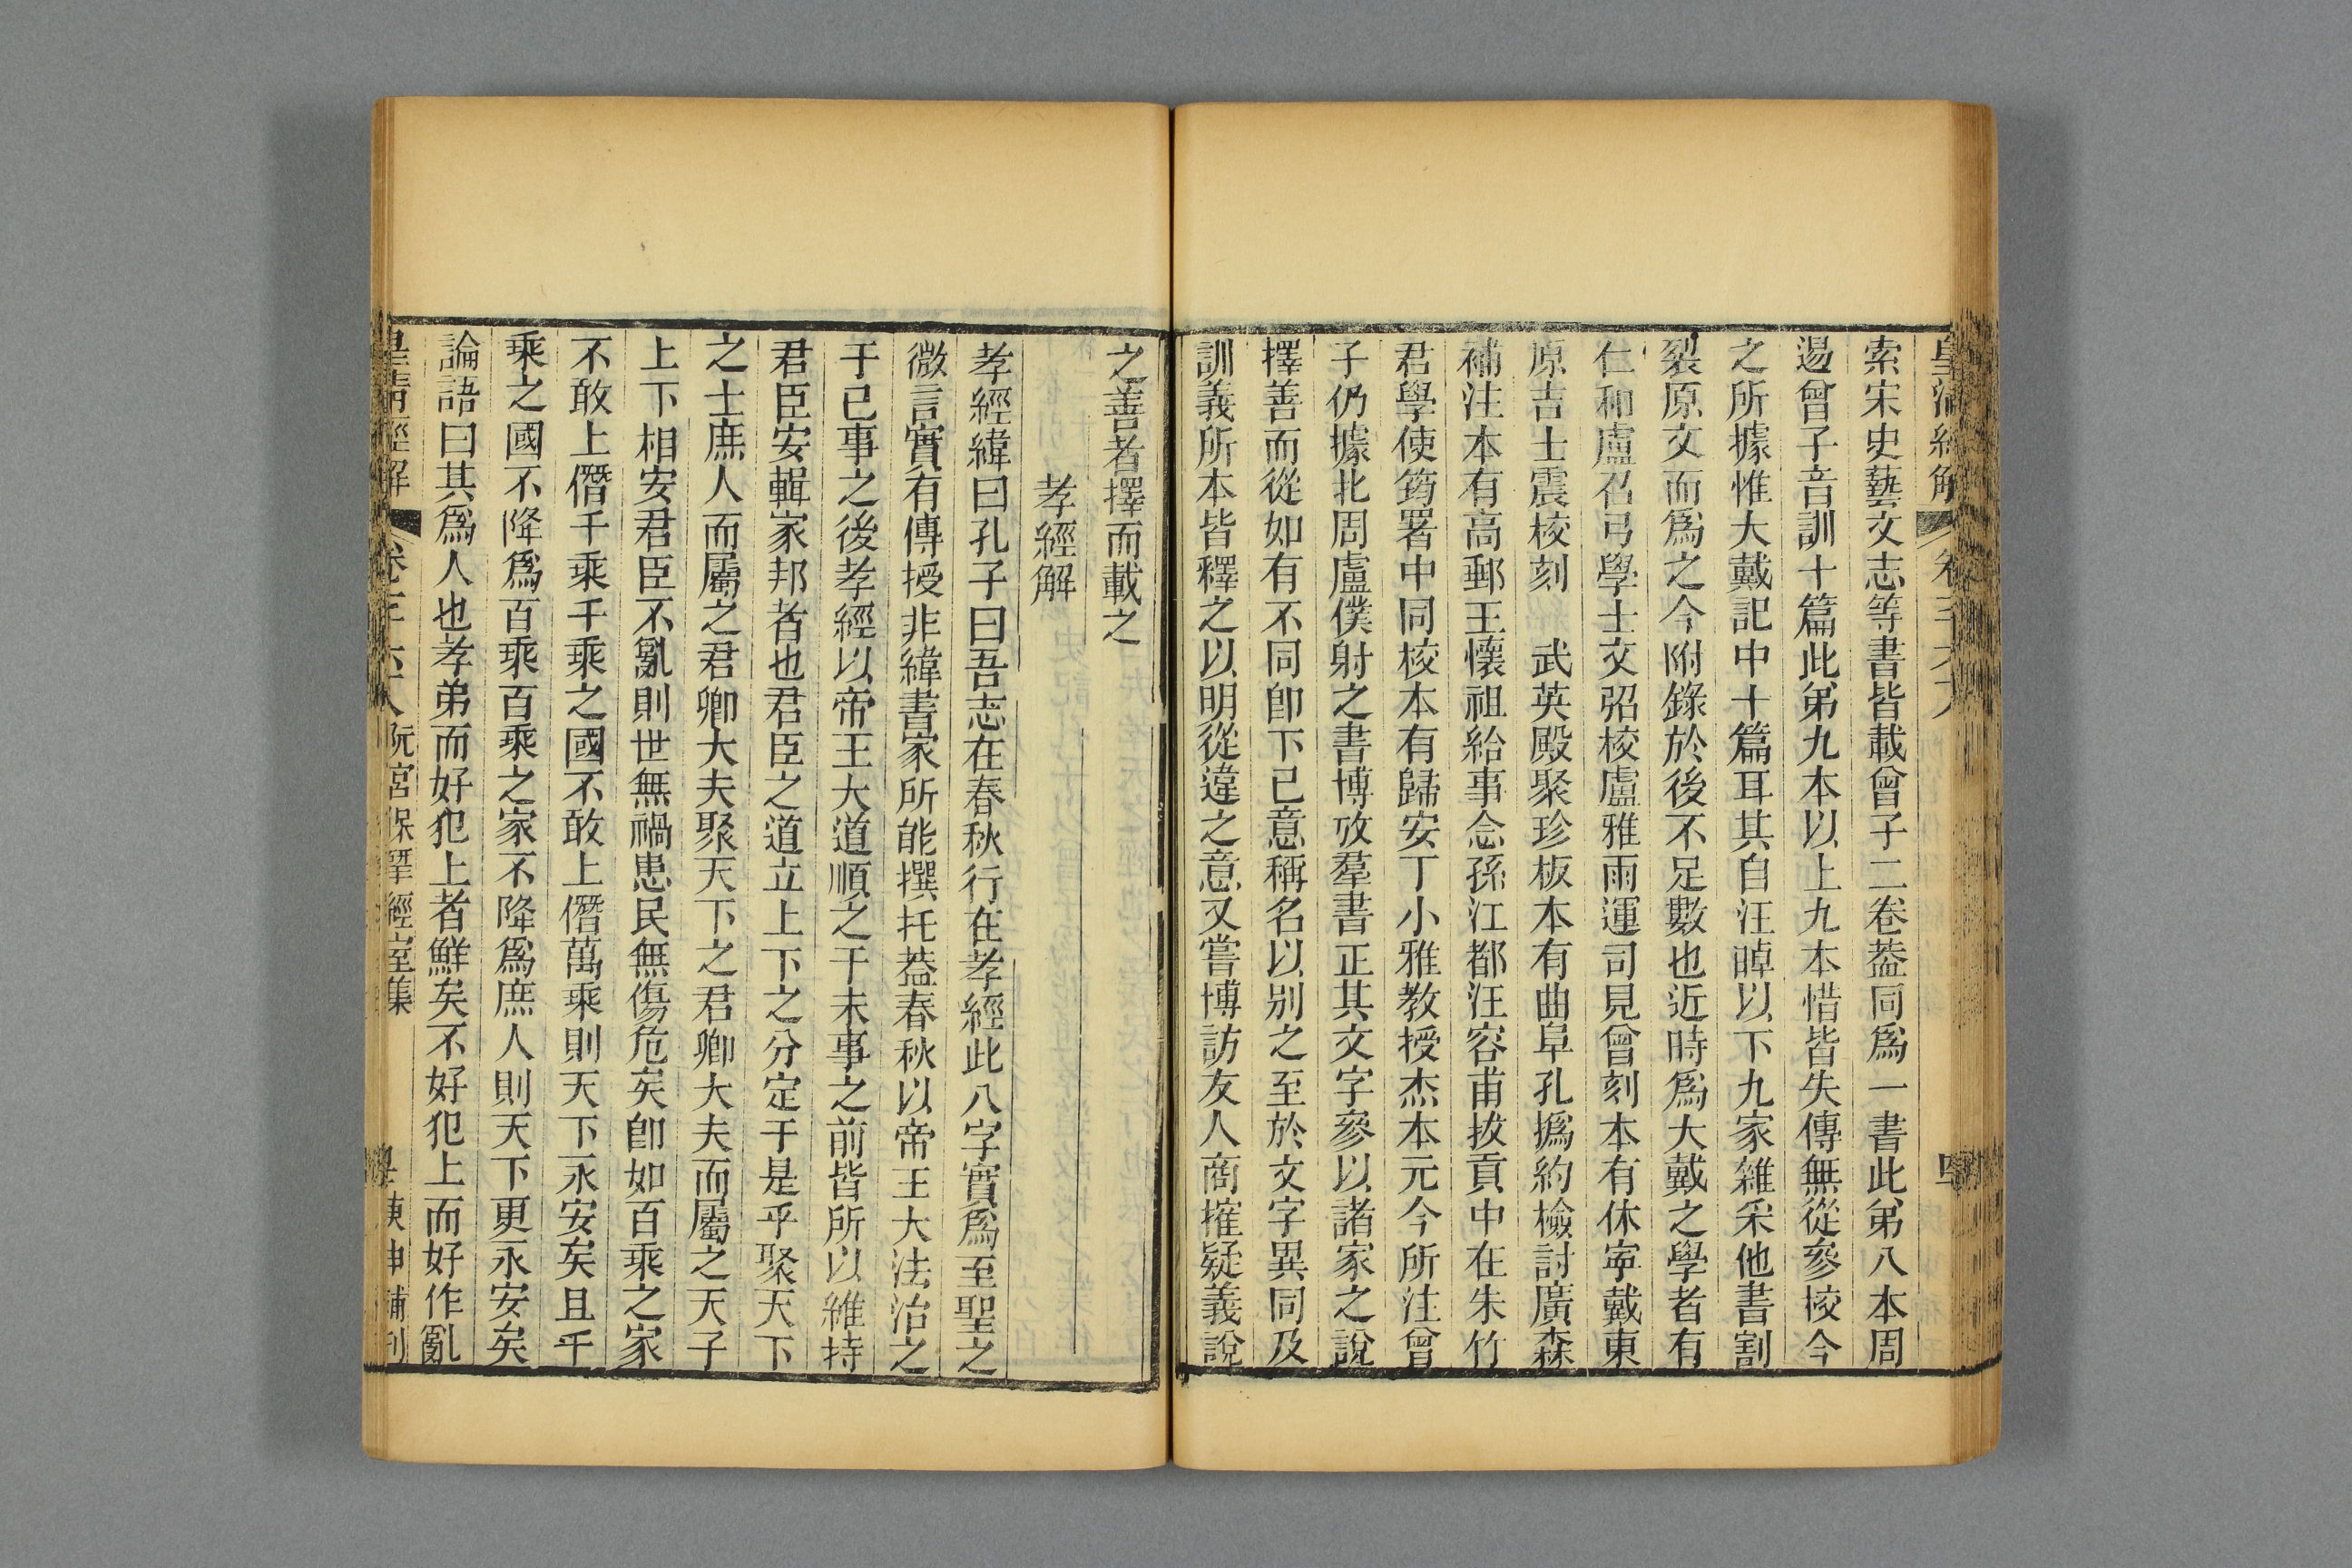 皇清經解 卷
索宋史藝文志等書皆載曾子二卷葢同爲一書此弟八本周
逿曾子音訓十篇此弟九本以上九本惜皆失傳無從參校今
之所據惟大戴記中十篇耳其自汪晫以下九家雜采他書割
裂原文而爲之今附錄於後不足數也近時爲大戴之學者有
仁和盧召弓學士文弨校盧雅雨運司見曾刻本有休寧戴東
原吉士震校刻 武英殿聚珍板本有曲阜孔撝約檢討廣森
補注本有高郵王懷祖給事念孫江都汪容甫拔貢中在朱竹
君學使筠署中同校本有歸安丁小雅教授杰本元今所注曾
子仍據北周盧僕射之書博攷羣書正其文字參以諸家之說
擇善而從如有不同卽下己意稱名以別之至於文字異同及
訓義所本皆釋之以明從違之意又嘗博訪友人商搉疑義說
之善者擇而載之
孝經解
孝經緯曰孔子曰吾志在春秋行在孝經此八字實爲至聖之
微言實有傳授非緯書家所能撰托葢春秋以帝王大法治之
于已事之後孝經以帝王大道順之于未事之前皆所以維持
君臣安輯家邦者也君臣之道立上下之分定于是乎聚天下
之士庶人而屬之君卿大夫聚天下之君卿大夫而屬之天子
上下相安君臣不亂則世無禍患民無傷危矣卽如百乘之家
不敢上僭千乘千乘之國不敢上僭萬乘則天下永安矣且千
乘之國不降爲百乘百乘之家不降爲庶人則天下更永安矣
論語曰其爲人也孝弟而好犯上者鮮矣不好犯上而好作亂
皇清經解 卷千六八 阮宮保揅經室集 庚申補刊